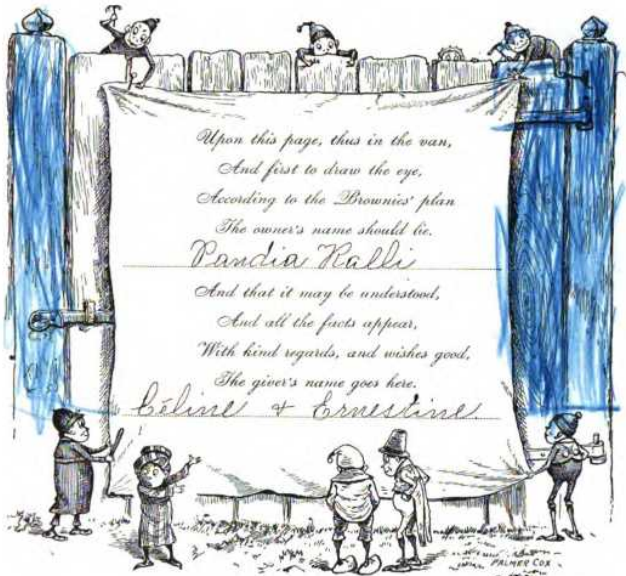 Upon this page, thus in the van,
And first to draw the eye,
According to the Brownies' plan
The owner's name should lie.
Pandia Ralli
And that it may be understood,
And all the facts appear,
With kind regards, and wishes good,
The giver's name goes here.
Céline & Ernestine
PALMER COX